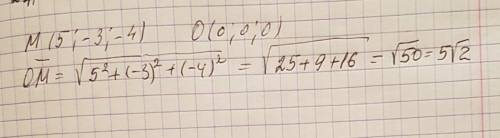 M(5;-3;-4) O(0;0;0)
OM̅ = √5²+(-3)²+(-4)² = √25+9+16 = √50 = 5√2